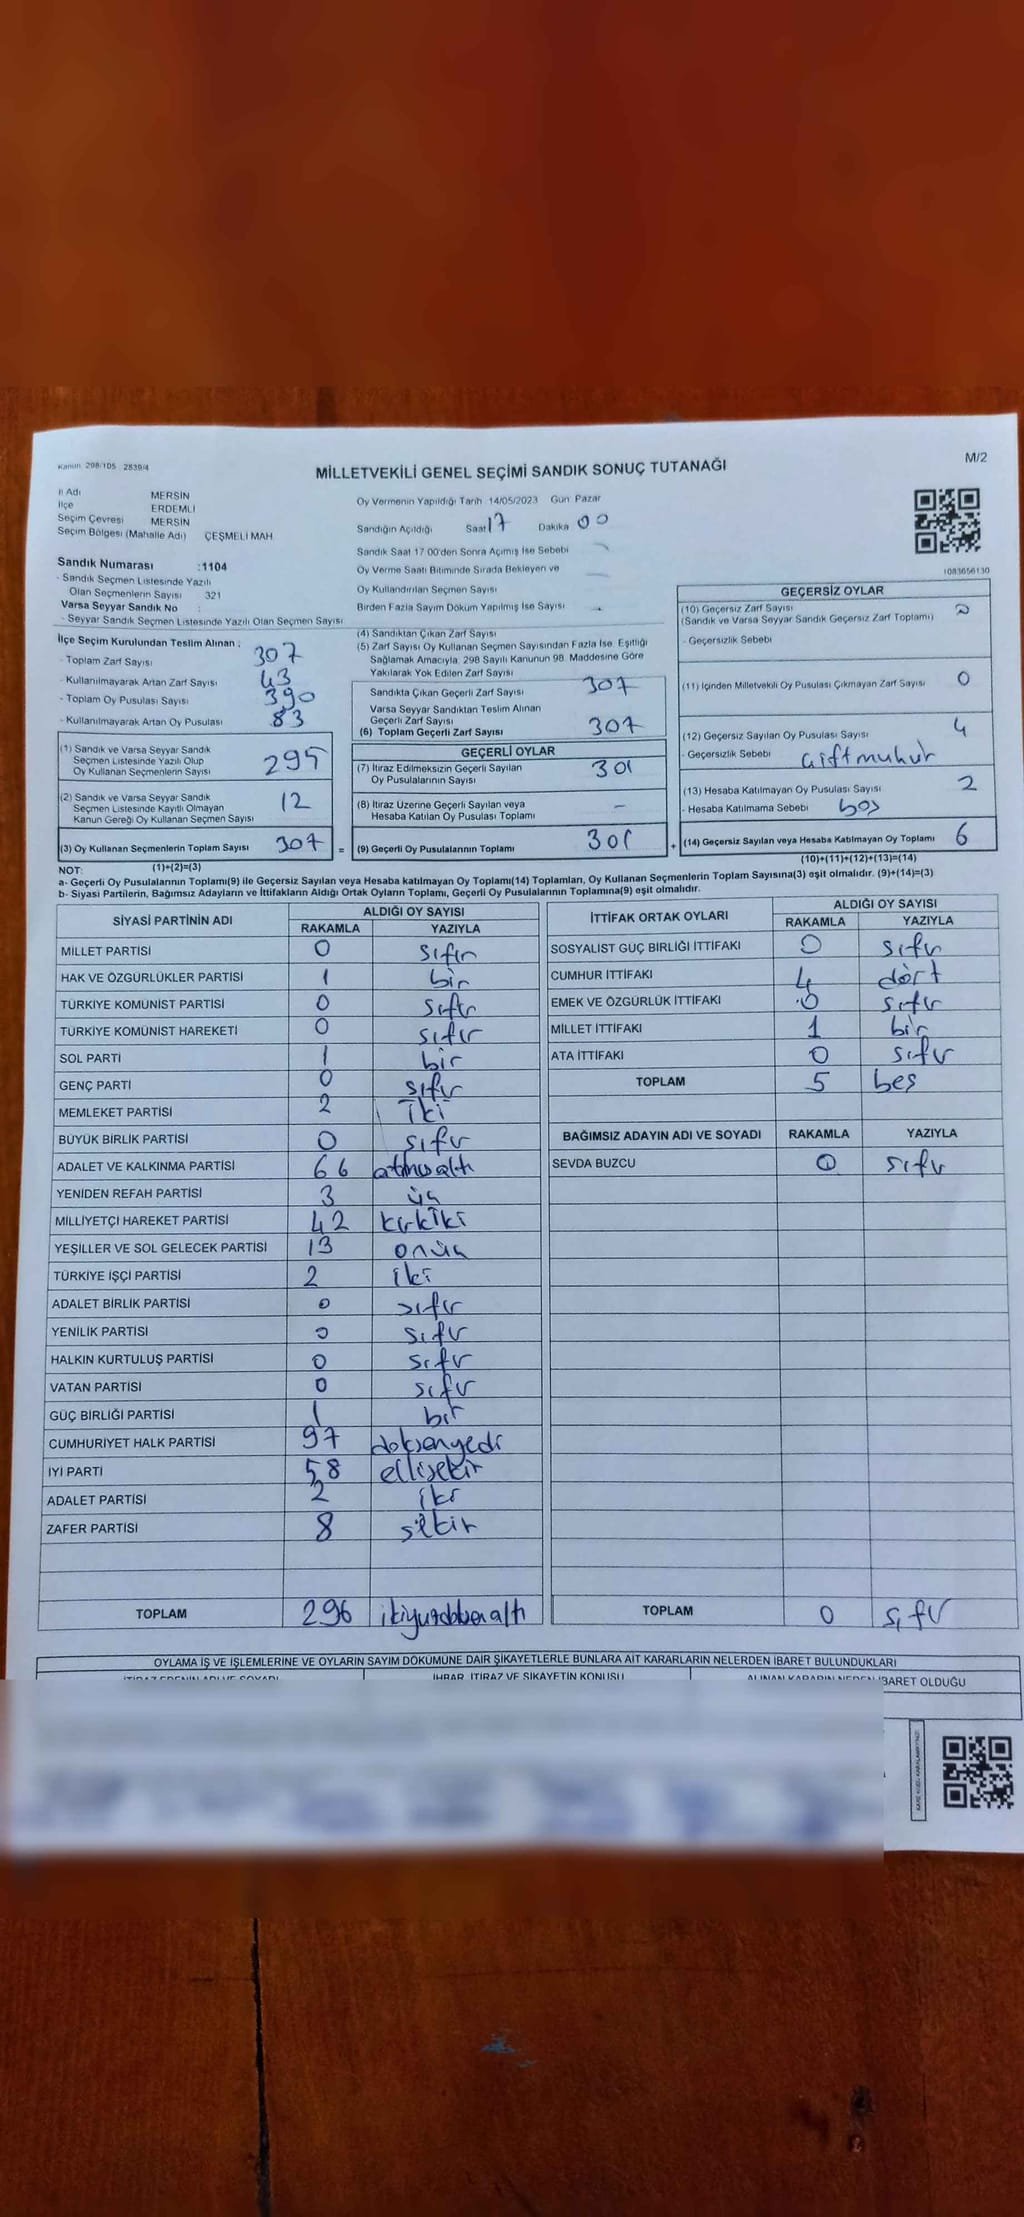 Kanun 298/105 2839/4
MİLLETVEKİLİ GENEL SEÇİMİ SANDIK SONUÇ TUTANAĞI
M/2
İl Adı MERSİN
İlçe ERDEMLİ
Seçim Çevresi MERSİN
Seçim Bölgesi (Mahalle Adı) ÇEŞMELİ MAH
Sandık Numarası :1104
- Sandık Seçmen Listesinde Yazılı
Olan Seçmenlerin Sayısı 321
Varsa Seyyar Sandık No :
- Seyyar Sandık Seçmen Listesinde Yazılı Olan Seçmen Sayısı
Oy Vermenin Yapıldığı Tarih 14/05/2023 Gün Pazar
Sandığın Açıldığı Saat 17 Dakika 00
Sandık Saat 17 00'den Sonra Açımış İse Sebebi
Oy Verme Saati Bitiminde Sırada Bekleyen ve
Oy Kullandırılan Seçmen Sayısı
Birden Fazla Sayım Döküm Yapılmış İse Sayısı
1083656130
İlçe Seçim Kurulundan Teslim Alınan :
- Toplam Zarf Sayısı 307
- Kullanılmayarak Artan Zarf Sayısı 43
- Toplam Oy Pusulası Sayısı 390
- Kullanılmayarak Artan Oy Pusulası 83
(1) Sandık ve Varsa Seyyar Sandık
Seçmen Listesinde Yazılı Olup
Oy Kullanan Seçmenlerin Sayısı 295
(2) Sandık ve Varsa Seyyar Sandık
Seçmen Listesinde Kayıtlı Olmayan
Kanun Gereği Oy Kullanan Seçmen Sayısı 12
(3) Oy Kullanan Seçmenlerin Toplam Sayısı 307 =
(4) Sandıktan Çıkan Zarf Sayısı
(5) Zarf Sayısı Oy Kullanan Seçmen Sayısından Fazla İse, Eşitliği
Sağlamak Amacıyla, 298 Sayılı Kanunun 98. Maddesine Göre
Yakılarak Yok Edilen Zarf Sayısı
Sandıkta Çıkan Geçerli Zarf Sayısı 307
Varsa Seyyar Sandıktan Teslim Alınan
Geçerli Zarf Sayısı
(6) Toplam Geçerli Zarf Sayısı 307
GEÇERLİ OYLAR
(7) İtiraz Edilmeksizin Geçerli Sayılan
Oy Pusulalarının Sayısı 301
(8) İtiraz Üzerine Geçerli Sayılan veya
Hesaba Katılan Oy Pusulası Toplamı -
(9) Geçerli Oy Pusulalarının Toplamı 301 +
GEÇERSİZ OYLAR
(10) Geçersiz Zarf Sayısı
(Sandık ve Varsa Seyyar Sandık Geçersiz Zarf Toplamı)
- Geçersizlik Sebebi
(11) İçinden Milletvekili Oy Pusulası Çıkmayan Zarf Sayısı 0
(12) Geçersiz Sayılan Oy Pusulası Sayısı 4
- Geçersizlik Sebebi çiftmuhur
(13) Hesaba Katılmayan Oy Pusulası Sayısı 2
- Hesaba Katılmama Sebebi boş
(14) Geçersiz Sayılan veya Hesaba Katılmayan Oy Toplamı 6
NOT: (1)+(2)=(3) (10)+(11)+(12)+(13)=(14)
a- Geçerli Oy Pusulalarının Toplamı(9) ile Geçersiz Sayılan veya Hesaba katılmayan Oy Toplamı(14) Toplamları, Oy Kullanan Seçmenlerin Toplam Sayısına(3) eşit olmalıdır. (9)+(14)=(3)
b- Siyasi Partilerin, Bağımsız Adayların ve İttifakların Aldığı Ortak Oyların Toplamı, Geçerli Oy Pusulalarının Toplamına(9) eşit olmalıdır.
SİYASİ PARTİNİN ADI ALDIĞI OY SAYISI
RAKAMLA YAZIYLA
MİLLET PARTİSİ 0 sıfır
HAK VE ÖZGÜRLÜKLER PARTİSİ 1 bir
TÜRKİYE KOMÜNİST PARTİSİ 0 sıfır
TÜRKİYE KOMÜNİST HAREKETİ 0 sıfır
SOL PARTİ 1 bir
GENÇ PARTİ 0 sıfır
MEMLEKET PARTİSİ 2 iki
BÜYÜK BİRLİK PARTİSİ 0 sıfır
ADALET VE KALKINMA PARTİSİ 66 atmışaltı
YENİDEN REFAH PARTİSİ 3 üç
MİLLİYETÇİ HAREKET PARTİSİ 42 kırkiki
YEŞİLLER VE SOL GELECEK PARTİSİ 13 onüç
TÜRKİYE İŞÇİ PARTİSİ 2 iki
ADALET BİRLİK PARTİSİ 0 sıfır
YENİLİK PARTİSİ 0 sıfır
HALKIN KURTULUŞ PARTİSİ 0 sıfır
VATAN PARTİSİ 0 sıfır
GÜÇ BİRLİĞİ PARTİSİ 1 bir
CUMHURİYET HALK PARTİSİ 97 doksanyedi
İYİ PARTİ 58 ellisekiz
ADALET PARTİSİ 2 iki
ZAFER PARTİSİ 8 sekiz
TOPLAM 296 ikiyüzdoksanaltı
İTTİFAK ORTAK OYLARI ALDIĞI OY SAYISI
RAKAMLA YAZIYLA
SOSYALİST GÜÇ BİRLİĞİ İTTİFAKI 0 sıfır
CUMHUR İTTİFAKI 4 dört
EMEK VE ÖZGÜRLÜK İTTİFAKI 0 sıfır
MİLLET İTTİFAKI 1 bir
ATA İTTİFAKI 0 sıfır
TOPLAM 5 beş
BAĞIMSIZ ADAYIN ADI VE SOYADI RAKAMLA YAZIYLA
SEVDA BUZCU 0 sıfır
TOPLAM 0 sıfır
OYLAMA İŞ VE İŞLEMLERİNE VE OYLARIN SAYIM DÖKÜMÜNE DAİR ŞİKAYETLERLE BUNLARA AİT KARARLARIN NELERDEN İBARET BULUNDUKLARI
İTİRAZ EDENİN ADI VE SOYADI İHBAR, İTİRAZ VE ŞİKAYETİN KONUSU ALINAN KARARIN NEDEN İBARET OLDUĞU